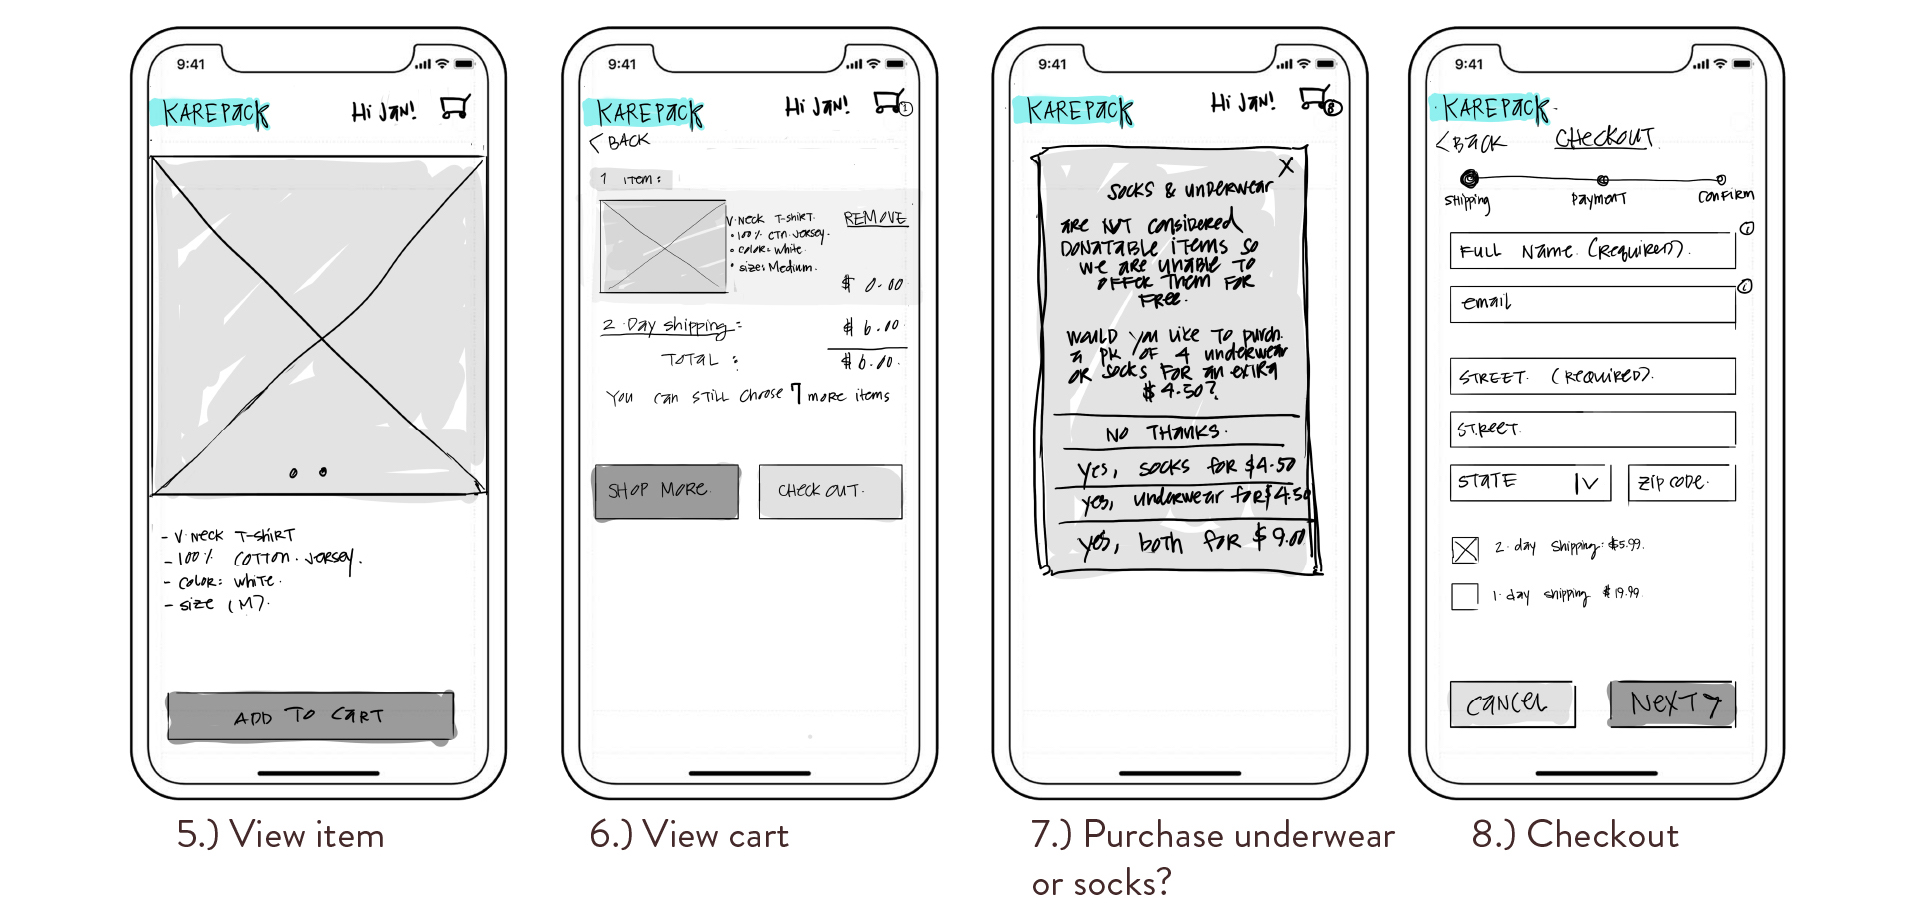 9:41
KAREPACK
Hi JAN!
- V. NECK T-SHIRT
- 100% COTTON. JERSEY.
- COLOR: WHITE.
- SIZE (M).
ADD TO CART
5.) View item
9:41
KAREPACK
Hi JAN!
1
< BACK
1 ITEM:
V. NECK T-SHIRT.
• 100% CTN. JERSEY.
• COLOR: WHITE.
• SIZE: MEDIUM.
REMOVE
$ 0.00
2-DAY SHIPPING:
$ 6.00
TOTAL :
$ 6.00.
YOU CAN STILL CHOOSE 7 MORE ITEMS
SHOP MORE.
CHECK OUT.
6.) View cart
9:41
KAREPACK
Hi JAN!
8
X
SOCKS & UNDERWEAR
ARE NOT CONSIDERED
DONATABLE ITEMS SO
WE ARE UNABLE TO
OFFER THEM FOR
FREE.
WOULD YOU LIKE TO PURCH.
A PK OF 4 UNDERWEAR
OR SOCKS FOR AN EXTRA
$ 4.50?
NO THANKS.
YES, SOCKS FOR $4.50
YES, UNDERWEAR FOR $4.50
YES, BOTH FOR $9.00
7.) Purchase underwear
or socks?
9:41
KAREPACK
< BACK
CHECKOUT
SHIPPING
PAYMENT
CONFIRM
FULL NAME. (REQUIRED).
EMAIL
STREET. (REQUIRED).
STREET.
STATE
ZIP CODE.
2-DAY SHIPPING: $5.99.
1-DAY SHIPPING $19.99.
CANCEL
NEXT >
8.) Checkout